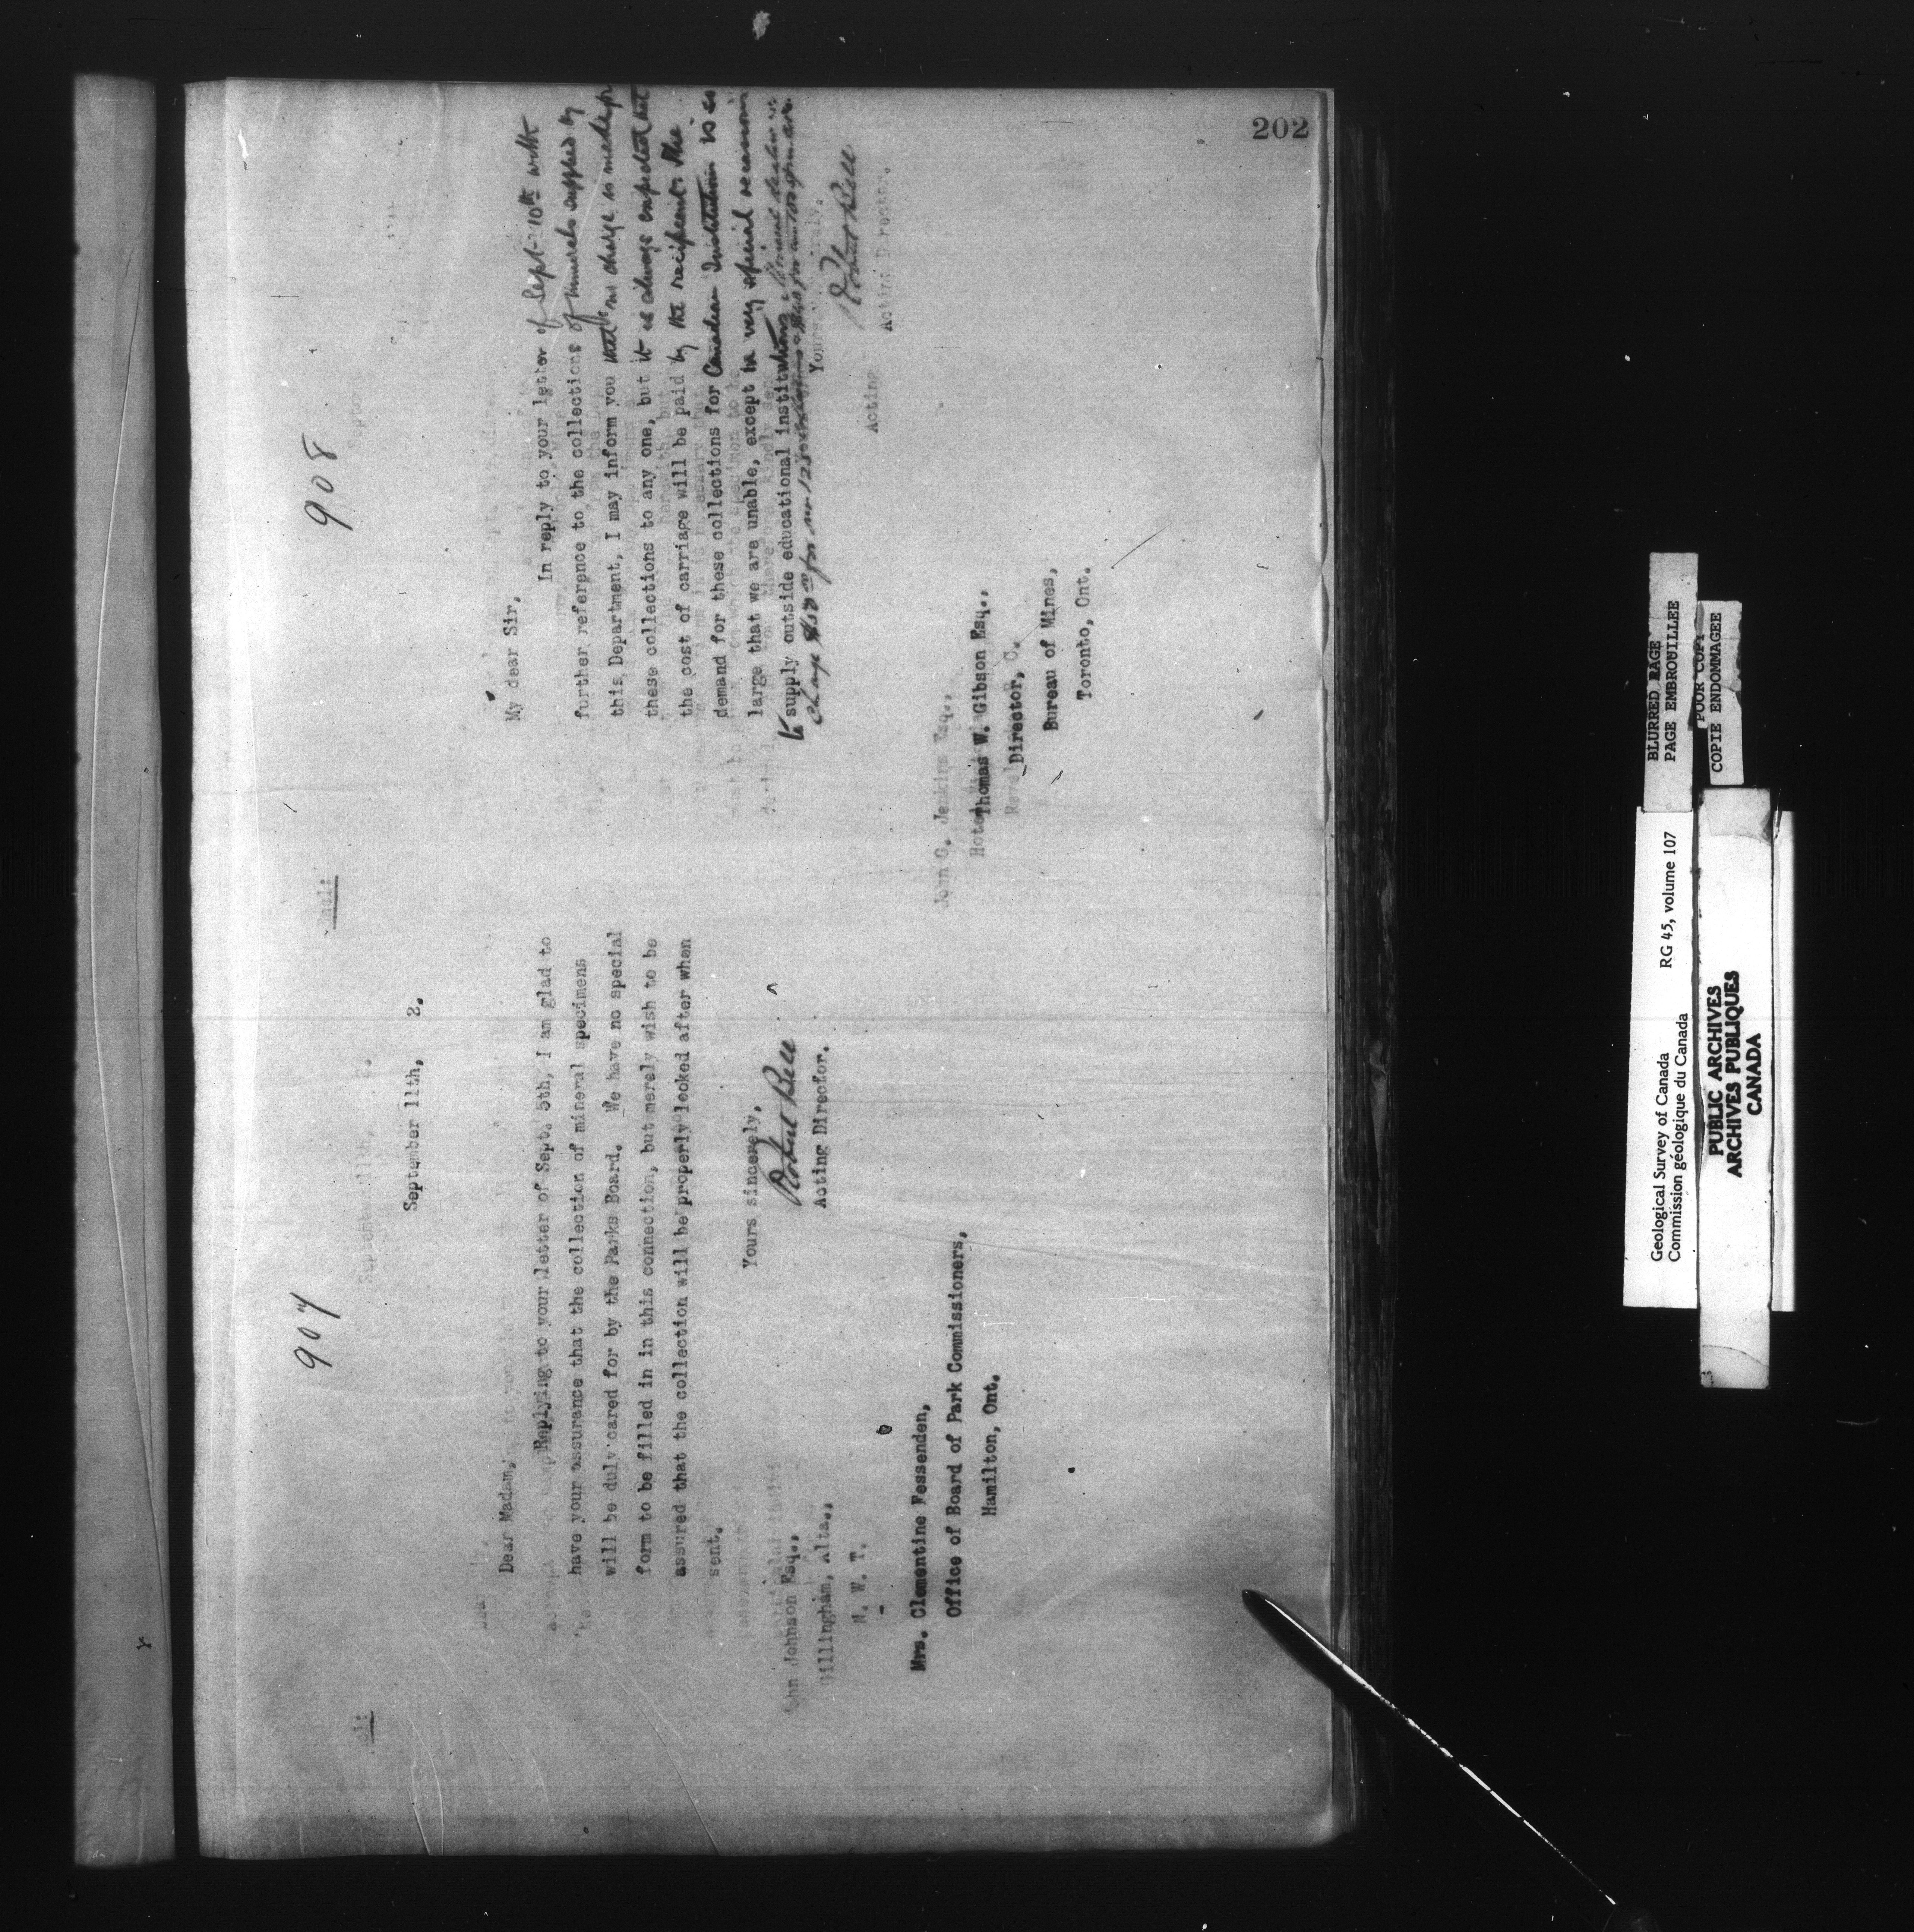 202
907
September 11th, 2.
Dear Madam,
Replying to your letter of Sept. 5th, I am glad to
have your assurance that the collection of mineral specimens
will be duly cared for by the Parks Board. We have no special
form to be filled in in this connection, but merely wish to be
assured that the collection will be properly looked after when
sent.
Yours sincerely,
Robert Bell
Acting Director.
John Johnson Esq.,
Gillingham, Alta.,
N. W. T.
Mrs. Clementine Fessenden,
Office of Board of Park Commissioners,
Hamilton, Ont.
908
My dear Sir,
In reply to your letter of Sept 10th with
further reference to the collections of minerals supplied by
this Department, I may inform you that no charge is made for
these collections to any one, but it is always expected that
the cost of carriage will be paid by the recipient. The
demand for these collections for Canadian Institutions is so
large that we are unable, except in very special
to supply outside educational institutions.
charge for
Yours
Robert Bell
Acting Director.
John G. Jenkins Esq.,
Hotel
Thomas W. Gibson Esq.,
Director,
Bureau of Mines,
Toronto, Ont.
BLURRED PAGE
PAGE EMBROUILLEE
POOR COPY
COPIE ENDOMMAGEE
Geological Survey of Canada
Commission géologique du Canada
RG 45, volume 107
PUBLIC ARCHIVES
ARCHIVES PUBLIQUES
CANADA